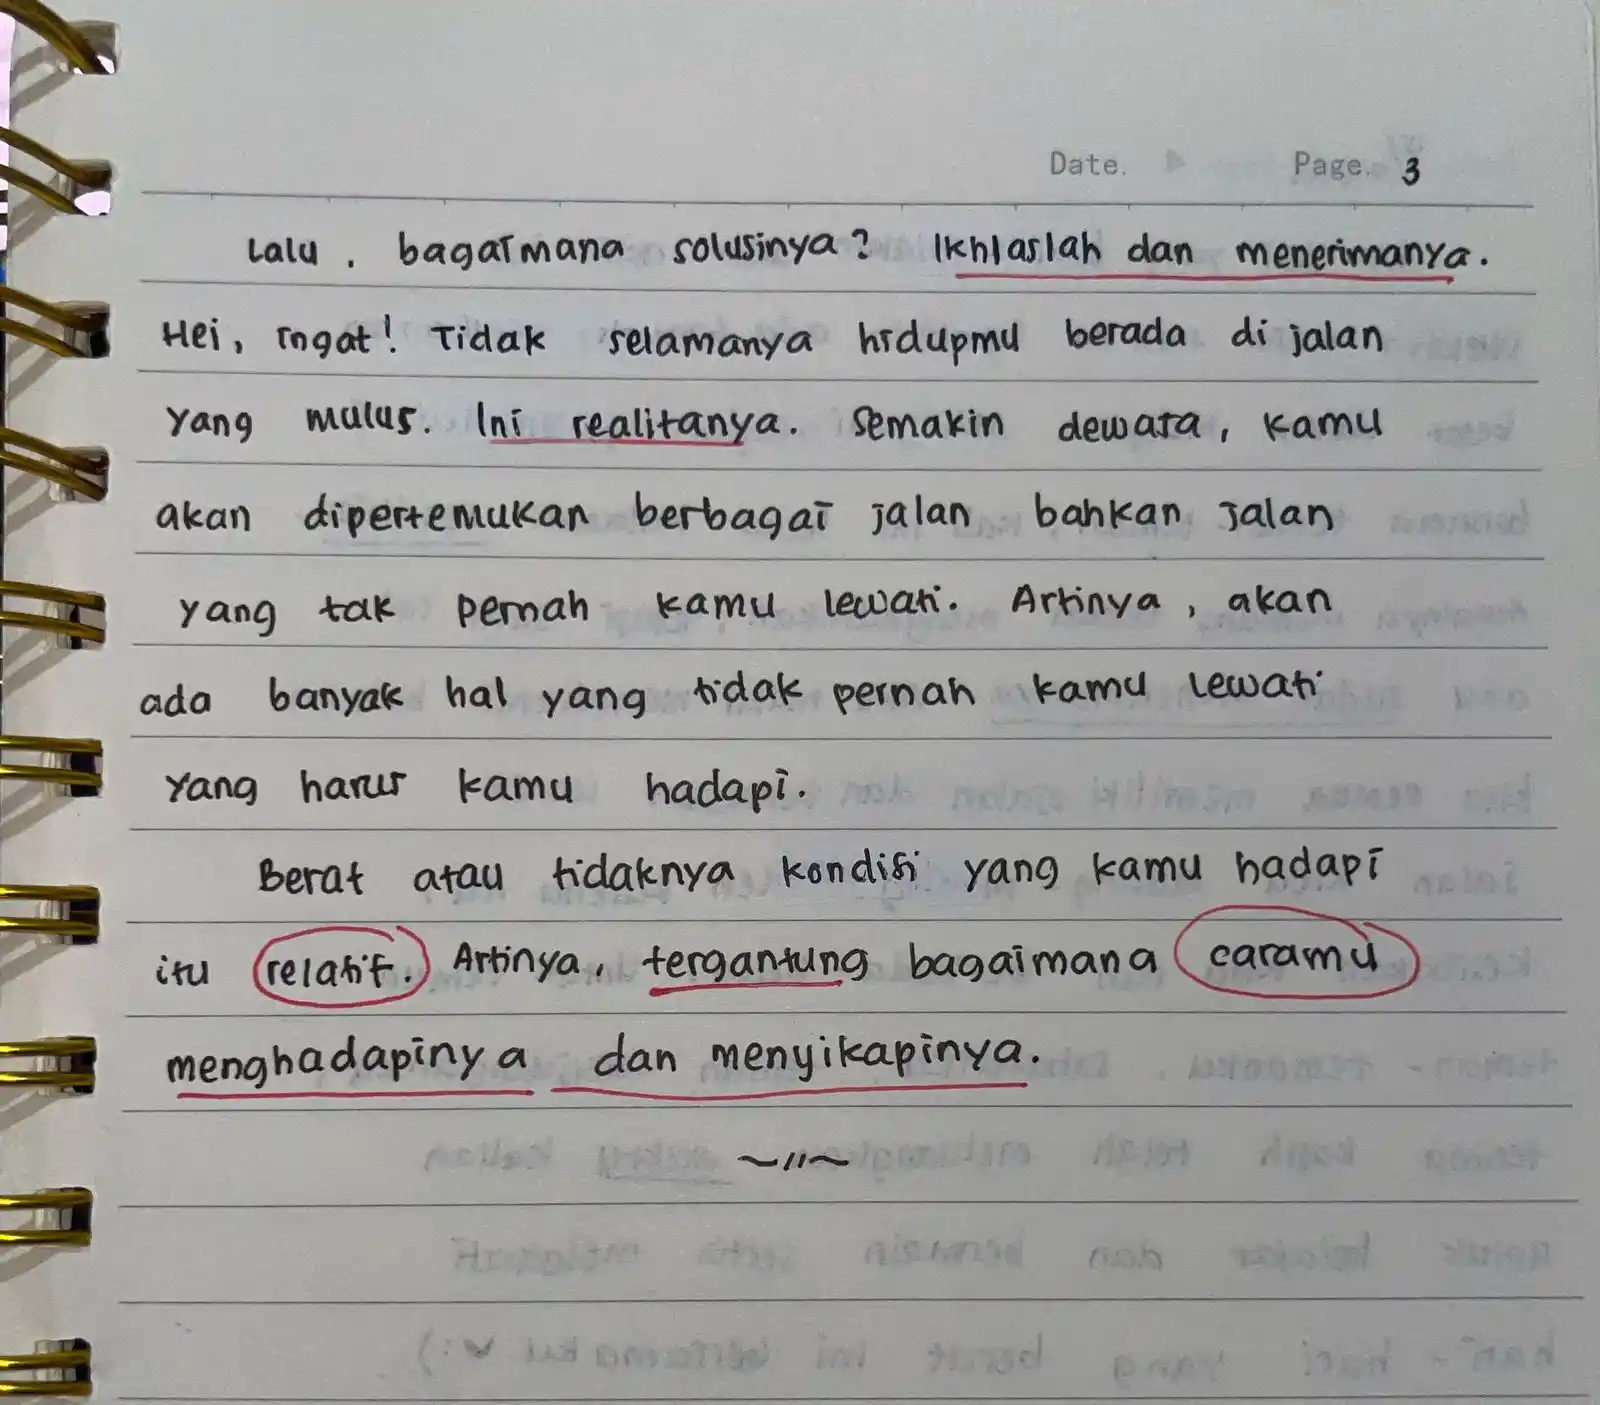 Date. Page. 3
Lalu, bagaimana solusinya? Ikhlaslah dan menerimanya.
Hei, ingat! Tidak selamanya hidupmu berada di jalan
yang mulus. Ini realitanya. Semakin dewasa, kamu
akan dipertemukan berbagai jalan bahkan jalan
yang tak pernah kamu lewati. Artinya, akan
ada banyak hal yang tidak pernah kamu lewati
yang harus kamu hadapi.
Berat atau tidaknya kondisi yang kamu hadapi
itu relatif. Artinya, tergantung bagaimana caramu
menghadapinya dan menyikapinya.